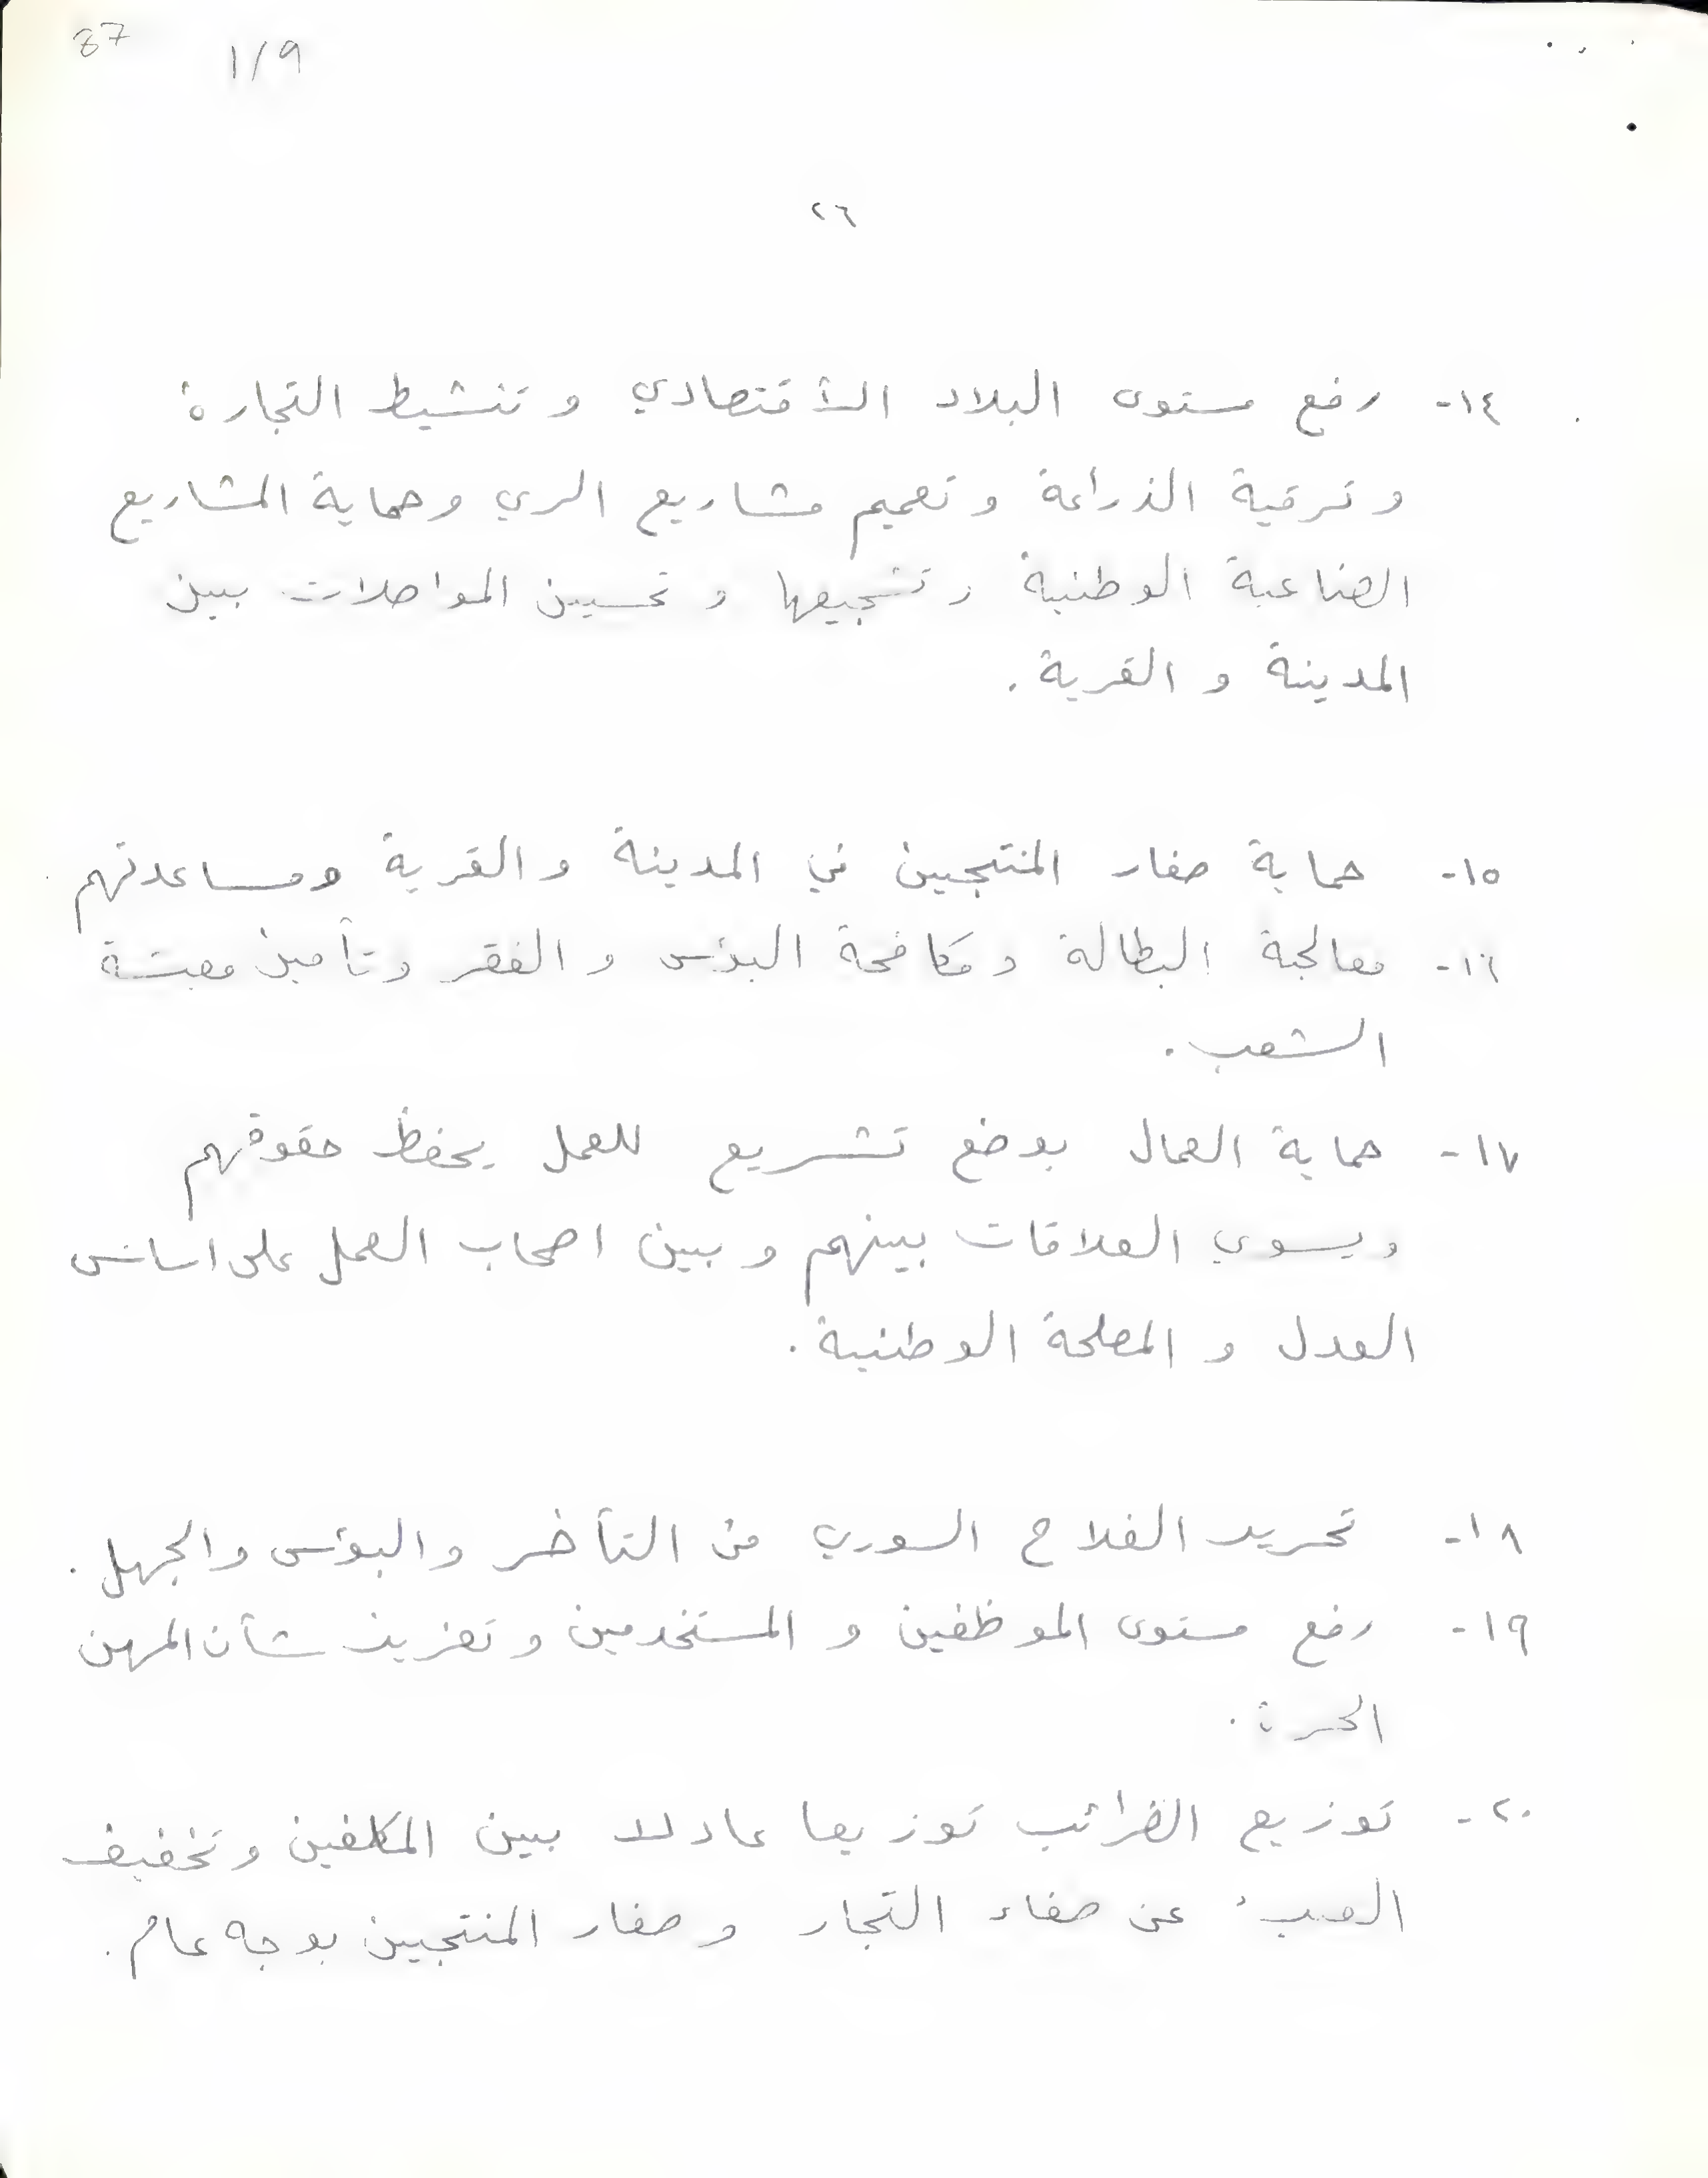 87
1/9
٢٦
١٤- رفع مستوى البلاد الأقتصادي و تنشيط التجارة
و ترقية الزراعة و تعميم مشاريع الري و حماية المشاريع
الصناعية الوطنية و تشجيعها و تحسين المواصلات بين
المدينة و القرية.
١٥- حماية صغار المنتجين في المدينة و القرية ومساعدتهم
١٦- معالجة البطالة و مكافحة البؤس و الفقر و تأمين معيشة
الشعب.
١٧- حماية العمال بوضع تشريع للعمل يحفظ حقوقهم
ويسوي العلاقات بينهم و بين اصحاب العمل على اساس
العدل و المصلحة الوطنية.
١٨- تحرير الفلاح السوري من التأخر و البؤس والجهل.
١٩- رفع مستوى الموظفين و المستخدمين و تعزيز شأن المهن
الحرة.
٢٠- توزيع الضرائب توزيعا عادلا بين المكلفين و تخفيف
العبء عن صغار التجار و صغار المنتجين بوجه عام.